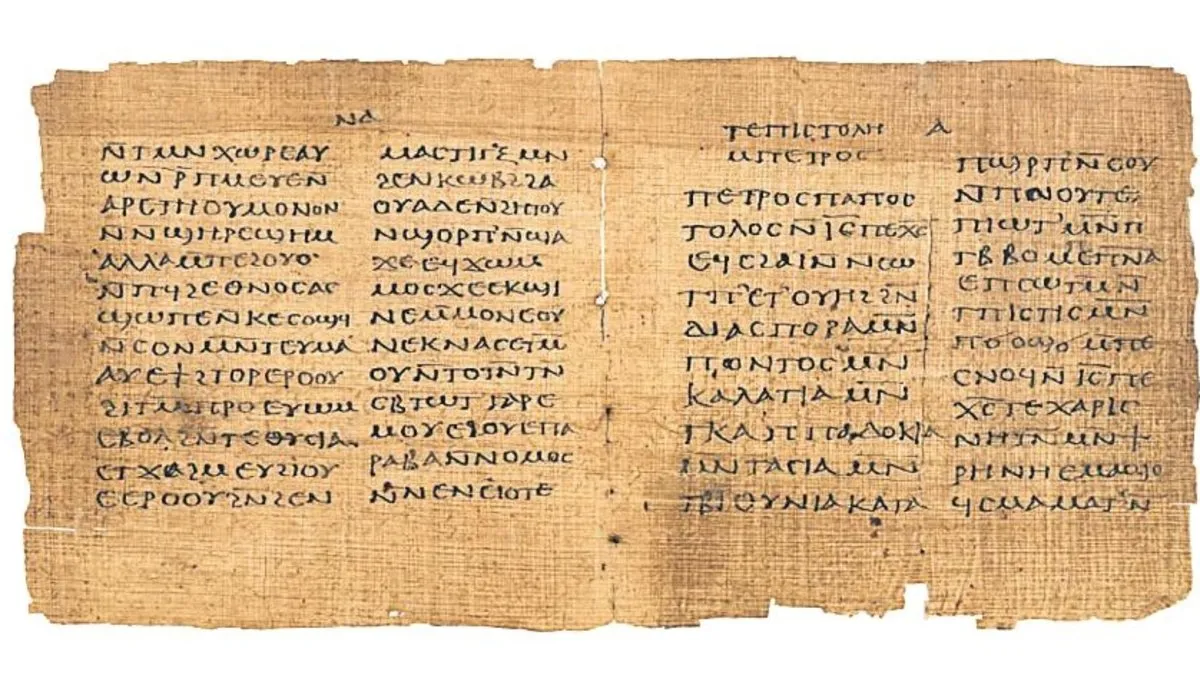 ⲛⲁ
ⲛ̄ⲧⲙⲛⲭⲱⲣⲉⲁⲩ
ⲱⲛⲣ̄ⲡⲙⲉⲩⲉⲛ
ⲁⲣⲉⲧⲏⲟⲩⲙⲟⲛⲟⲛ
ⲛ̄ⲛϣⲏⲣⲉϣⲏⲙ
ⲁⲗⲗⲁⲙⲡⲉϩⲟⲩⲟ
ⲛ̄ⲡϥϩⲉⲑⲛⲟⲥⲁⲥ
ϣⲱⲡⲉⲛ̄ⲕⲉⲥⲟⲡϥ
ⲛ̄ⲥⲟⲛⲙⲛⲧⲉⲩⲙⲁ
ⲁⲩⲉϯϩⲧⲟⲣⲉⲣⲟⲟⲩ
ϩⲓⲧⲙ̄ⲡⲣⲟⲉⲩⲱⲙ
ⲉⲃⲟⲗϩⲛⲧⲉⲑⲩⲥⲓⲁ
ⲉⲧϫⲁϩⲙⲉⲩϩⲓⲟⲩ
ⲉⲉⲣⲟⲟⲩϩⲛϩⲉⲛ
ⲙⲁⲥⲧⲓⲅⲝ̄ⲙⲛ
ϩⲉⲛⲕⲱⲃϩϩⲁ
ⲟⲩⲁⲇⲉⲛϩⲏⲧⲟⲩ
ⲛϣⲟⲣⲡⲛ̄ϣⲁ
ϫⲉⲉϥϫⲱⲙ
ⲙⲟⲥϫⲉⲉⲕϣⲓ
ⲛⲉⲙ̄ⲙⲟⲛⲉⲟⲩ
ⲛⲉⲕⲛⲁⲥⲉⲧⲙ̄
ⲟⲩⲛ̄ⲧⲟⲓ̈ⲛⲧⲛ
ⲥⲃⲧⲱⲧⲅⲁⲣⲉ
ⲙⲟⲩⲉϩⲟⲩⲉⲡⲁ
ⲣⲁⲃⲁⲛⲛⲟⲙⲟⲥ
ⲛ̄ⲛⲉⲛⲉⲓⲟⲧⲉ
ⲧⲉⲡⲓⲥⲧⲟⲗⲏ ⲁ
ⲙⲡⲉⲧⲣⲟⲥ
ⲡⲉⲧⲣⲟⲥⲡⲁⲡⲟⲥ
ⲧⲟⲗⲟⲥⲛ̄ⲓ̅ⲥ̅ⲡⲉⲭⲥ̅
ⲉϥⲥϩⲁⲓ̈ⲛⲛⲥⲱ
ⲧⲡ̄ⲉⲧⲟⲩⲏϩϩⲛ̄
ⲇⲓⲁⲥⲡⲟⲣⲁⲙ̄ⲛ̄
ⲡⲡⲟⲛⲧⲟⲥⲙ̄ⲛ
ⲕⲁⲗⲁⲧⲓⲁⲙ̄ⲛ
ⲧⲕⲁⲡⲡⲁⲇⲟⲕⲓⲁ
ⲙⲛⲧⲁⲥⲓⲁⲙ̄ⲛ̄
ⲧⲃⲓⲑⲩⲛⲓⲁⲕⲁⲧⲁ
ⲡϣⲣ̄ⲡⲛ̄ⲥⲟⲩ
ⲛ̄ⲡⲛⲟⲩⲧⲉ
ⲡⲓⲱⲧⲙ̄ⲛⲡ
ⲧⲃⲃⲟⲙⲡⲉⲡⲛⲁ
ⲉⲡⲥⲱⲧⲙ̄ⲛ
ⲧⲡⲓⲥⲧⲓⲥⲙ̄ⲛ
ⲡϭⲟϣϭϣⲙ̄ⲡⲉ
ⲥⲛⲟϥⲛ̄ⲓ̅ⲥ̅ⲡⲉ
ⲭⲥ̅ⲧⲉⲭⲁⲣⲓⲥ
ⲛⲏⲧⲛ̄ⲙⲛϯ
ⲣⲏⲛⲏⲉⲙⲁϣⲟ
ϥⲥⲙⲁⲙⲁⲧⲛ̄